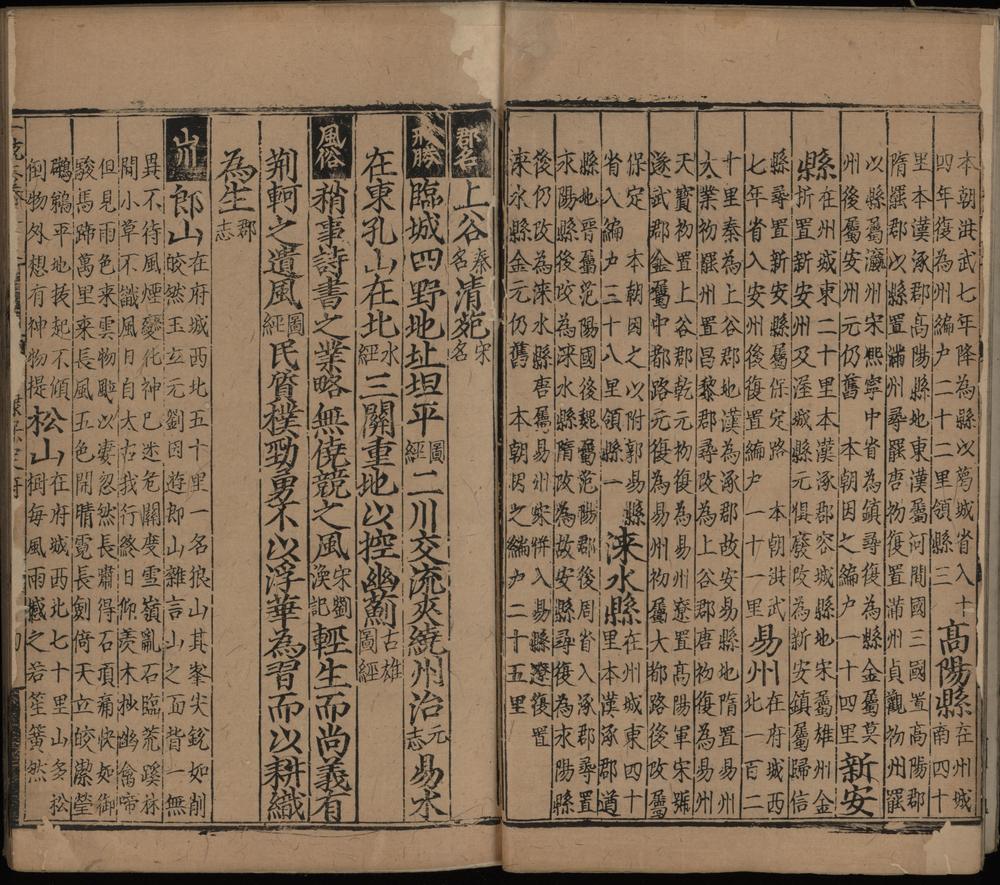 本朝洪武七年降為縣以葛城省入十
四年復為州編戶二十二里領縣三
高陽縣
在州城
南四十
里本漢涿郡高陽縣地東漢屬河間國三國置高陽郡
隋罷郡以縣置滿州尋罷唐初復置蒲州貞觀初州罷
以縣屬瀛州宋熙寧中省為鎮尋復為縣金屬莫
州後屬安州元仍舊 本朝因之編戶一十四里
新安
縣
在州城東二十里本漢涿郡容城縣地宋屬雄州金
折置新安州及渥城縣元俱廢改為新安鎮屬歸信
縣尋置新安縣屬保定路 本朝洪武
七年省入安州後復置編戶一十一里
易州
在府城西
北一百二
十里秦為上谷郡地漢為涿郡故安易縣地隋置易州
大業初罷州置昌黎郡尋改為上谷郡唐初復為易州
天寶初置上谷郡乾元初復為易州遼置高陽軍宋號
遂武郡金屬中都路元復為易州初屬大都路後改屬
保定 本朝因之以附郭易縣
省入編戶三十八里領縣一
淶水縣
在州城東四十
里本漢涿郡遒
縣地晋屬范陽國後魏屬范陽郡後周省入涿郡尋置
永陽縣後改為淶水縣隋改為故安縣尋復為永陽縣
後仍改為淶水縣唐屬易州宋併入易縣遼復置
淶水縣金元仍舊 本朝因之編戶二十五里
郡名 上谷 秦名 清苑 宋名
形勝 臨城四野地址坦平 圖經 二川交流夾繞州治 元志 易水
在東孔山在北 水經 三關重地以控幽薊 古雄圖經
風俗 稍事詩書之業略無僥競之風 宋劉渙記 輕生而尚義有
荆軻之遺風 圖經 民質樸勁勇不以浮華為習而以耕織
為生 郡志
山川 郎山
在府城西北五十里一名狼山其峯尖銳如削
皎然玉立元劉因遊郎山雜言山之面皆一無
異不待風煙變化神已迷危關度雪嶺亂石臨荒蹊林
間小草不識風日自太古我行終日仰羨木抄幽禽啼
但見雨色來雲物颭以凄忽然長嘯得石頂痛快如御
駿馬蹄萬里來長風五色開晴霓長劍倚天立皎潔瑩
鷿鵜平地拔起不傾
倒物外想有神物提
松山
在府城西北七十里山多松
栢每風雨撼之若笙簧然